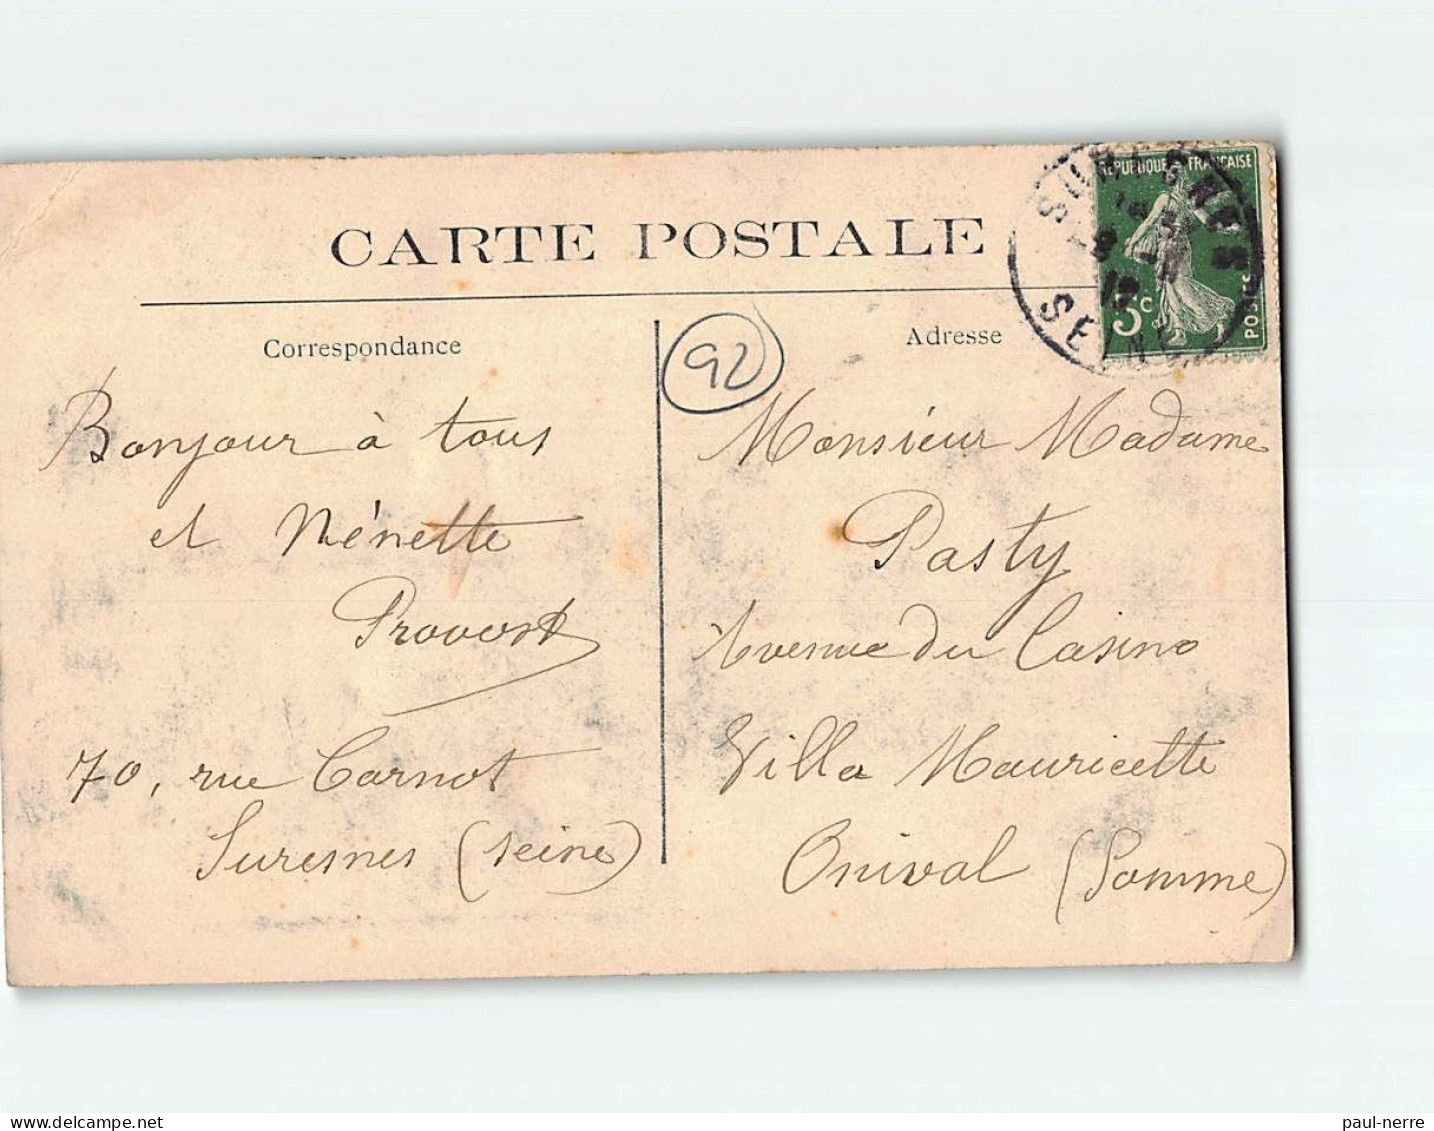 CARTE POSTALE
Correspondance
Bonjour à tous
et Nénette
Provost
70, rue Carnot
Suresnes (Seine)
92
Adresse
Monsieur Madame
Pasty
Avenue du Casino
Villa Mauricette
Onival (Somme)
RÉPUBLIQUE FRANÇAISE
5c
POSTES
SURESNES
SEINE
delcampe.net
paul-nerre